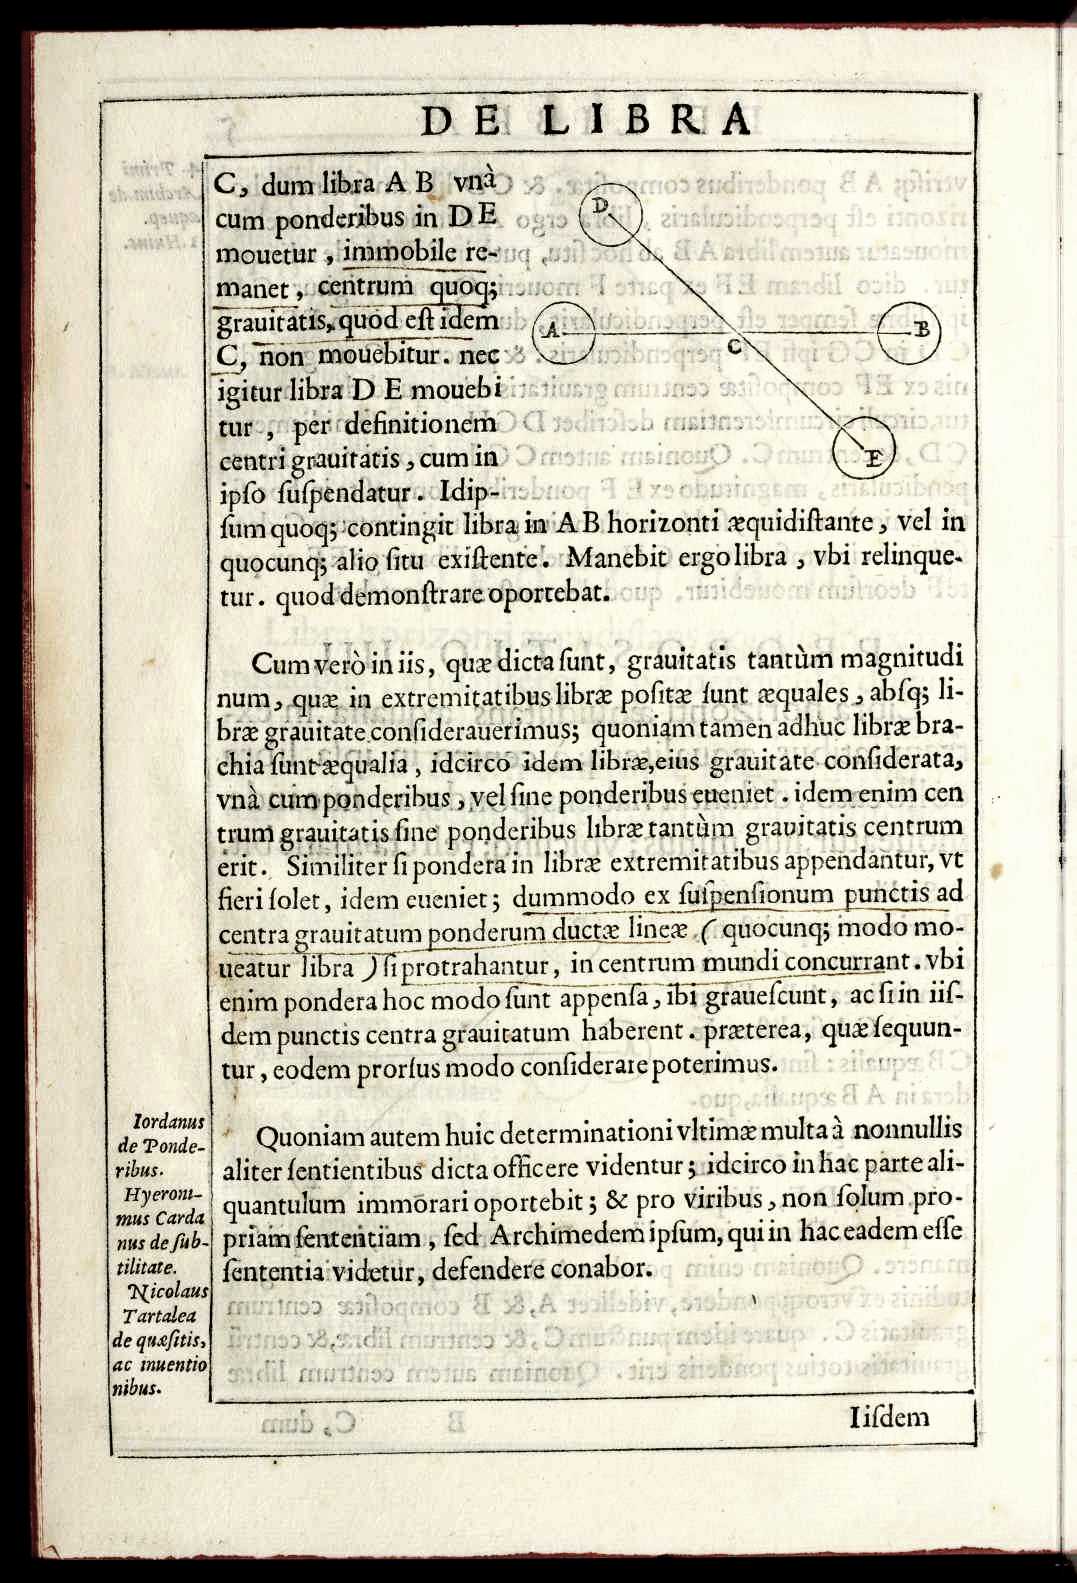 DE LIBRA
C, dum libra A B vnà
cum ponderibus in D E
mouetur, immobile re-
manet, centrum quoq;
grauitatis, quod eſt idem
C, non mouebitur. nec
igitur libra D E mouebi
tur, per definitionem
centri grauitatis, cum in
ipſo ſuſpendatur. Idip-
ſum quoq; contingit libra in A B horizonti æquidiſtante, vel in
quocunq; alio ſitu exiſtente. Manebit ergo libra, vbi relinque-
tur. quod demonſtrare oportebat.
D
A
B
C
E
Cum verò in iis, quæ dicta ſunt, grauitatis tantùm magnitudi
num, quæ in extremitatibus libræ poſitæ ſunt æquales, abſq; li-
bræ grauitate conſiderauerimus; quoniam tamen adhuc libræ bra-
chia ſunt æqualia, idcirco idem libræ, eius grauitate conſiderata,
vnà cum ponderibus, vel ſine ponderibus eueniet. idem enim cen
trum grauitatis ſine ponderibus libræ tantùm grauitatis centrum
erit. Similiter ſi pondera in libræ extremitatibus appendantur, vt
fieri ſolet, idem eueniet; dummodo ex ſuſpenſionum punctis ad
centra grauitatum ponderum ductæ lineæ (quocunq; modo mo-
ueatur libra) ſi protrahantur, in centrum mundi concurrant. vbi
enim pondera hoc modo ſunt appenſa, ibi graueſcunt, ac ſi in iiſ-
dem punctis centra grauitatum haberent. præterea, quæ ſequun-
tur, eodem prorſus modo conſiderare poterimus.
Iordanus
de Ponde-
ribus.
Hyerom-
mus Carda
nus de ſub-
tilitate.
Nicolaus
Tartalea
de quæſitis,
ac inuentio
nibus.
Quoniam autem huic determinationi vltimæ multa à nonnullis
aliter ſentientibus dicta officere videntur; idcirco in hac parte ali-
quantulum immorari oportebit; & pro viribus, non ſolum pro-
priam ſententiam, ſed Archimedem ipſum, qui in hac eadem eſſe
ſententia videtur, defendere conabor.
Iiſdem